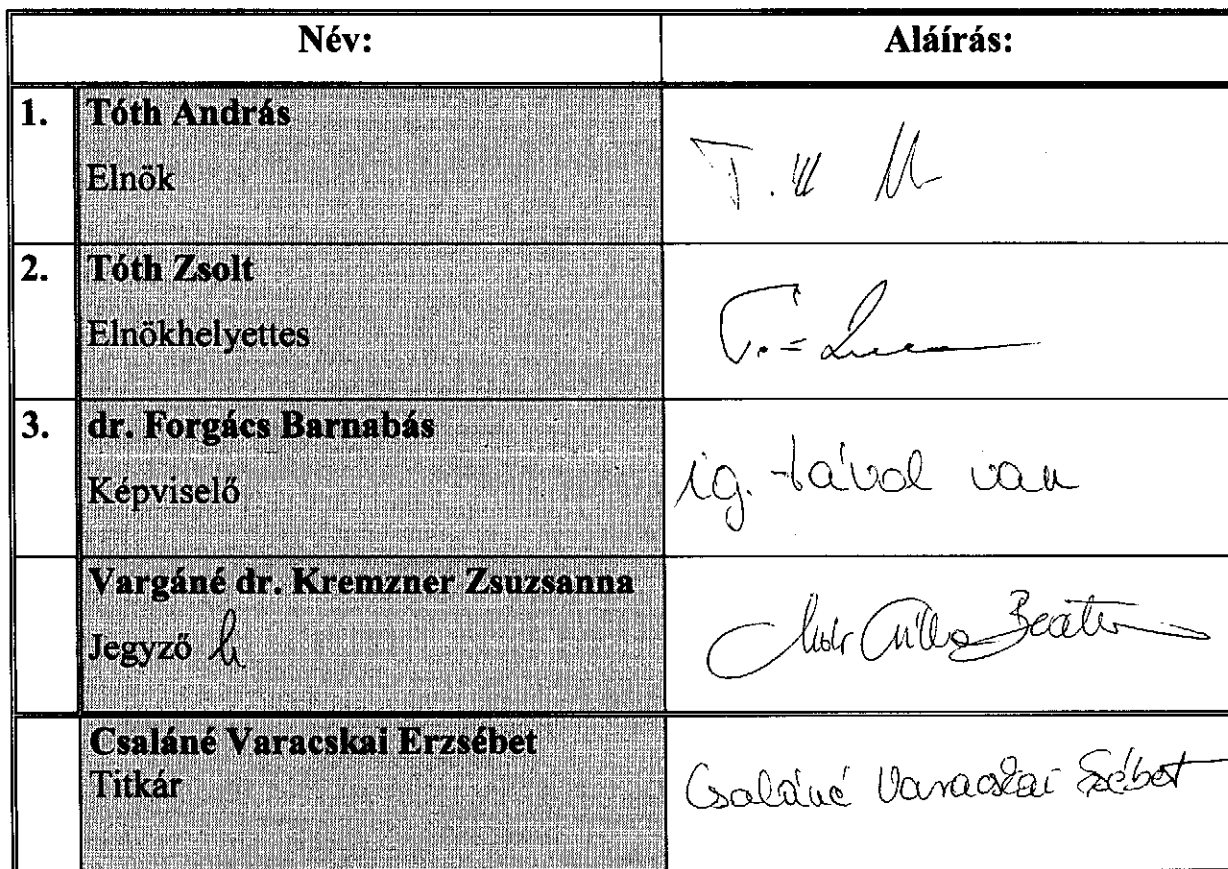 Név: Aláírás:
1. Tóth András
Elnök
T.
2. Tóth Zsolt
Elnökhelyettes
T.
3. dr. Forgács Barnabás
Képviselő
ig. távol van
Vargáné dr. Kremzner Zsuzsanna
Jegyző h
Beáta
Csaláné Varacskai Erzsébet
Titkár
Csaláné Varacskai